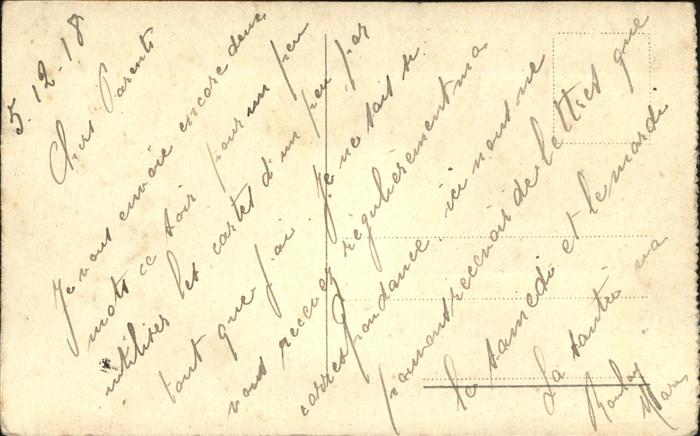 5.12.18
Chers Parents
Je vous envoie encore deux
mots ce soir pour un peu
utiliser les cartes d'un peu par
tout que j'ai. Je ne sais si
vous recevez régulièrement ma
correspondance. ici nous ne
pouvons recevoir de lettres que
le samedi et le mardi
La santé va